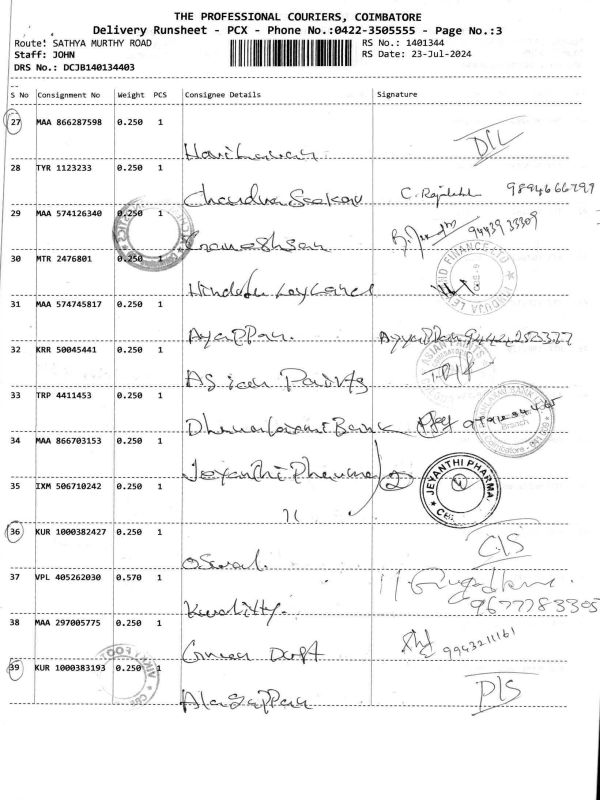 THE PROFESSIONAL COURIERS, COIMBATORE
Delivery Runsheet - PCX - Phone No.:0422-3505555 - Page No.:3
Route: SATHYA MURTHY ROAD
RS No.: 1401344
Staff: JOHN
RS Date: 23-Jul-2024
DRS No.: DCJB140134403
S No Consignment No Weight PCS Consignee Details Signature
27 MAA 866287598 0.250 1
Hariharan
28 TYR 1123233 0.250 1
Chandra Seekar 9894666799
29 MAA 574126340 0.250 1
9443933309
30 MTR 2476801 0.250 1
Hinduja Leyland
HINDUJA LEYLAND FINANCE LTD
31 MAA 574745817 0.250 1
Ayappan. Ayyappan 9442253377
32 KRR 50045441 0.250 1
Asian Paints
ASIAN PAINTS
33 TRP 4411453 0.250 1
Dhanalaxmi Bank
Branch
Coimbatore
34 MAA 866703153 0.250 1
Jeyanthi Pharma
JEYANTHI PHARMA
35 IXM 506710242 0.250 1
11
36 KUR 1000382427 0.250 1
Oswal.
C/S
37 VPL 405262030 0.570 1
Kwality.
9677783305
38 MAA 297005775 0.250 1
Dept
9943211161
39 KUR 1000383193 0.250 1
Alagappan
D/S